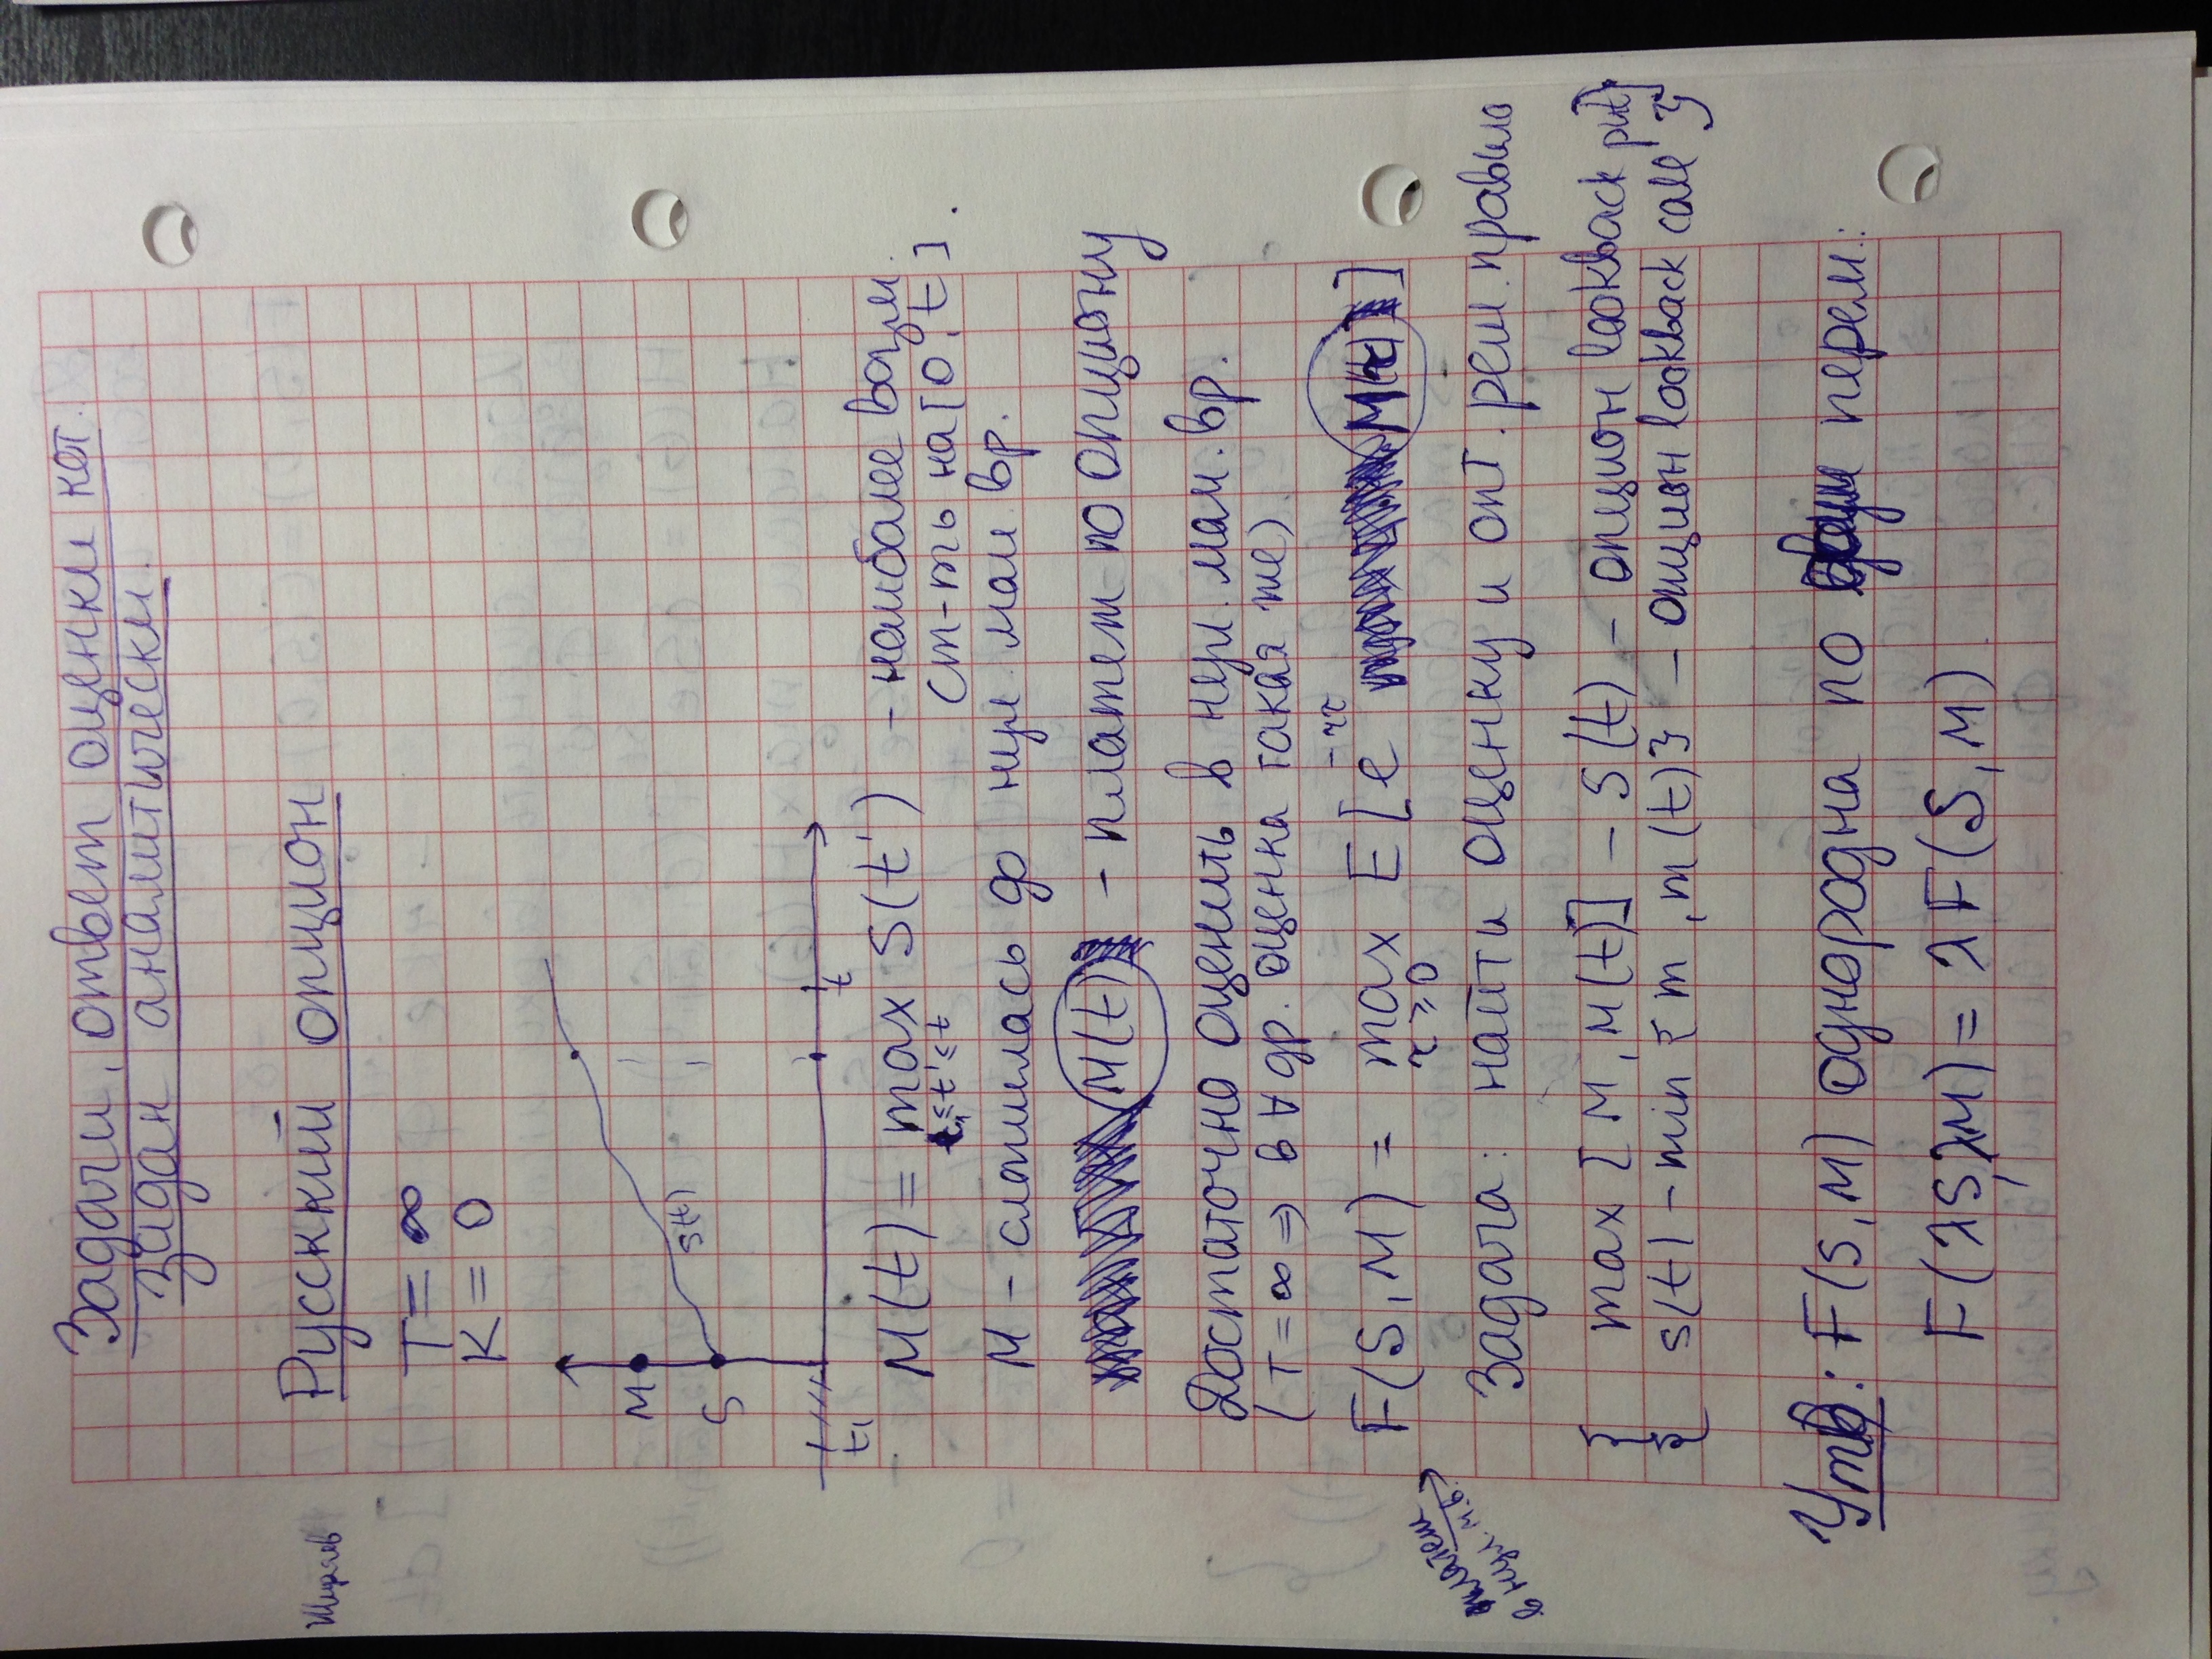 Задачи, ответ оценки кот.
задан аналитически.
Ширяев
Русский опцион
T = ∞
K = 0
M
S
S(t)
t₁
t
M(t) = max S(t') - наиболее возм.
t₁≤t'≤t
ст-ть на [0,t].
M - сложилась до нул. мом. вр.
M(t) - платеж по опциону
Достаточно оценить в нул. мом. вр.
(T = ∞ ⇒ в ∀ др. оценка такая же)
F(S,M) = max E[e^{-rτ} M(τ)]
τ≥0
в нул. м. в.
Задача: найти оценку и опт. реш. правило
{ max [M, M(t)] - S(t) - опцион lookback put }
{ S(t) - min {m, m(t)} - опцион lookback call }
Утв: F(S,M) однородна по перем.:
F(λS, λM) = λF(S,M)